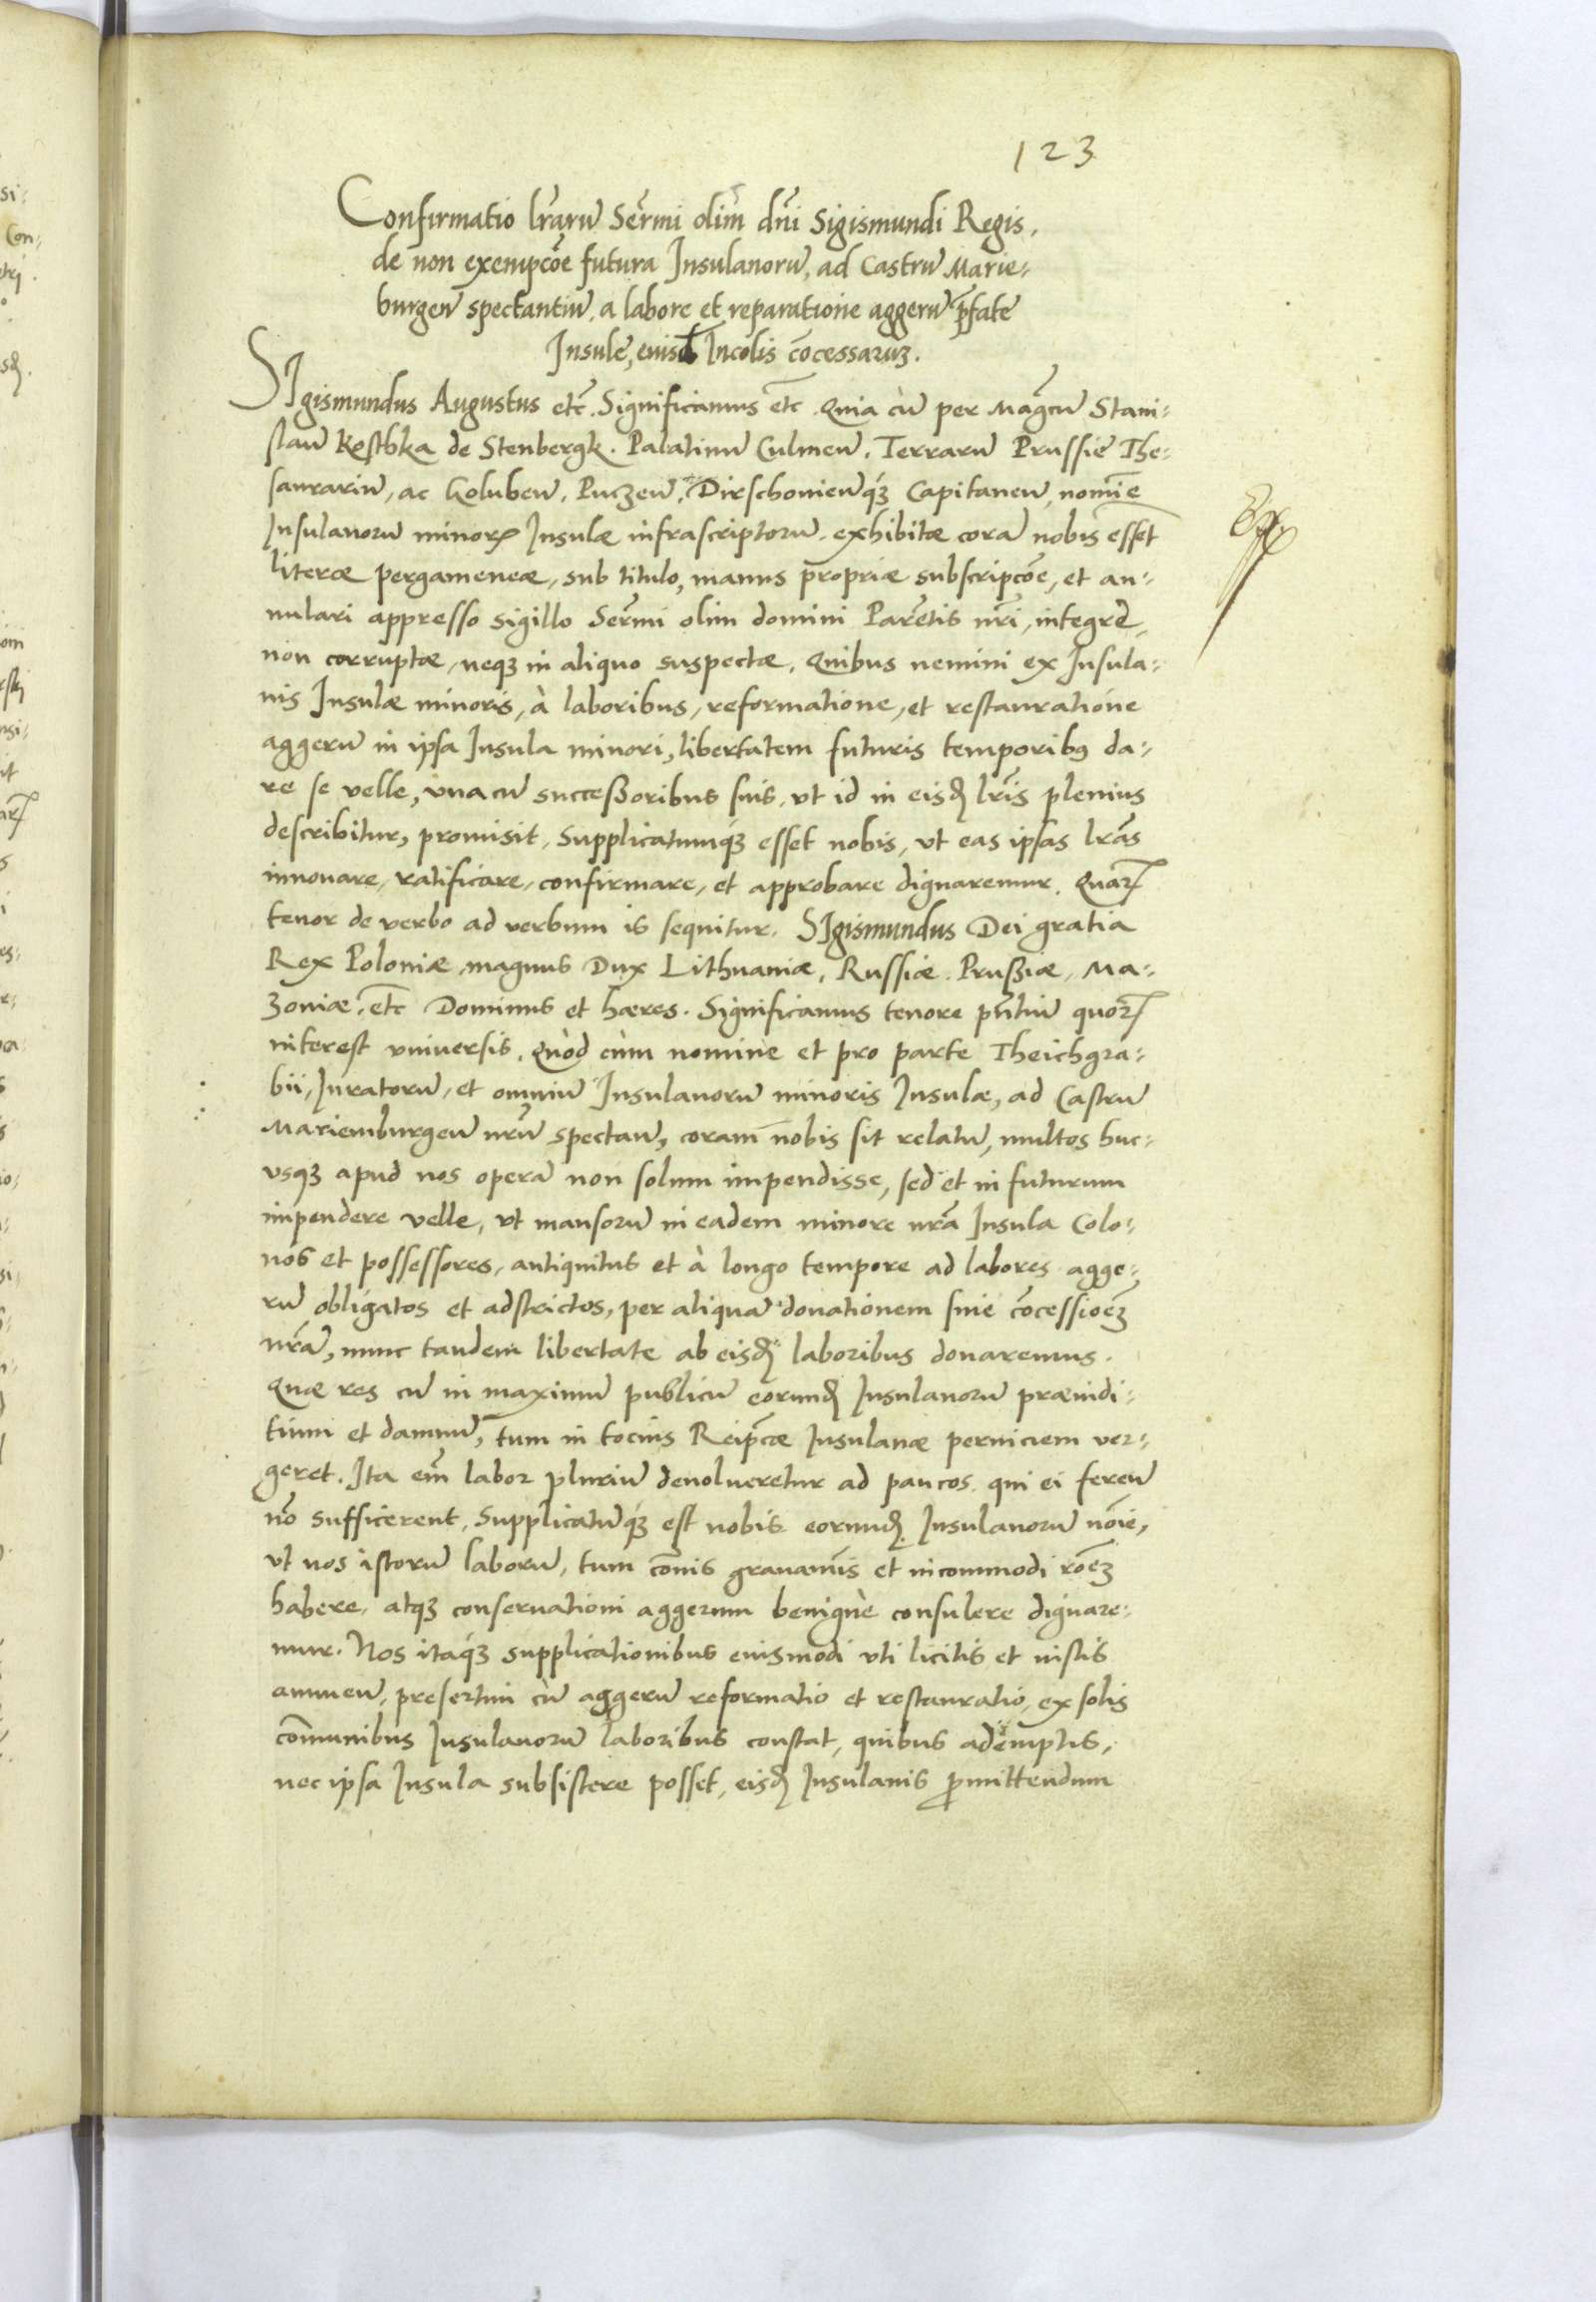 123
Confirmatio lr̃arũ Ser̃mi olim dñi Sigismundi Regis,
de non exempcõe futura Insulanorũ, ad Castrũ Marie-
burgeñ spectantiũ, a labore et reparatione aggerũ p̃fate
Insule, eiusd Incolis cõcessaruʒ.
SIgismundus Augustus etc̃. Significamus etc̃. Quia cũ per Mag̃cũ Stani-
slaũ Kosthka de Stenbergk. Palatinũ Culmeñ. Terrarũ Prussie The-
saurariũ, ac Golubeñ, Puczeñ, Dirschouieñqʒ Capitaneũ, nomĩe
Insulanorũ minorꝝ Insulæ infrascriptorũ, exhibitæ corã nobis esset
literæ pergameneæ, sub titulo, manus propriæ subscripcõe, et an-
nulari appresso sigillo Ser̃mi olim domini Parẽtis nr̃i, integre,
non corruptæ, neqʒ in aliquo suspectæ. Quibus nemini ex Insula-
nis Insulæ minoris, à laboribus, reformatione, et restauratione
aggerũ in ipsa Insula minori, libertatem futuris temporibꝰ da-
re se velle, vna cũ successoribus suis, vt id in eisdꝫ lr̃is plenius
describitur, promisit. Supplicatumqʒ esset nobis, vt eas ipsas lr̃as
innouare, ratificare, confirmare, et approbare dignaremur. Quarꝝ
tenor de verbo ad verbum is sequitur. SIgismundus Dei gratia
Rex Poloniæ, magnus Dux Lithuaniæ, Russiæ. Prussiæ, Ma-
zouiæ, etc̃ Dominus et hæres. Significamus tenore pñtiũ quorꝝ
interest vniuersis. Quòd cùm nomine et pro parte Theichgra-
bii, Iuratorũ, et omniũ Insulanorũ minoris Insulæ, ad Castrũ
Mariemburgeñ nr̃ũ spectañ, coram nobis sit relatũ, multos huc-
vsqʒ apud nos operã non solum impendisse, sed et in futurum
impendere velle, vt mansorũ in eadem minore nr̃a Insula Colo-
nos et possessores, antiquitus et à longo tempore ad labores agge-
rũ obligatos et adstrictos, per aliquã donationem siue cõcessioẽʒ
nr̃ã, nunc tandem libertate ab eisdꝫ laboribus donaremus.
Quæ res cũ in maximũ publicũ eorundꝫ Insulanorũ præiudi-
tium et damnũ, tum in tocius Reip̃cæ Insulanæ perniciem ver-
geret. Ita em̃ labor pluriũ deuolueretur ad paucos, qui ei fereñ
nõ sufficerent. Supplicatũqʒ est nobis eorundꝫ Insulanorũ nõie,
vt nos istorũ laborũ, tum cõnis grauamĩs et incommodi rõeʒ
habere, atqʒ conseruationi aggerum benignè consulere dignare-
mur. Nos itaqʒ supplicationibus eiusmodi vti licitis et iustis
annueñ, presertim cũ aggerũ reformatio et restauratio, ex solis
cõmunibus Insulanorũ laboribus constat, quibus ademptis,
nec ipsa Insula subsistere posset, eisdꝫ Insulanis ꝓmittendum